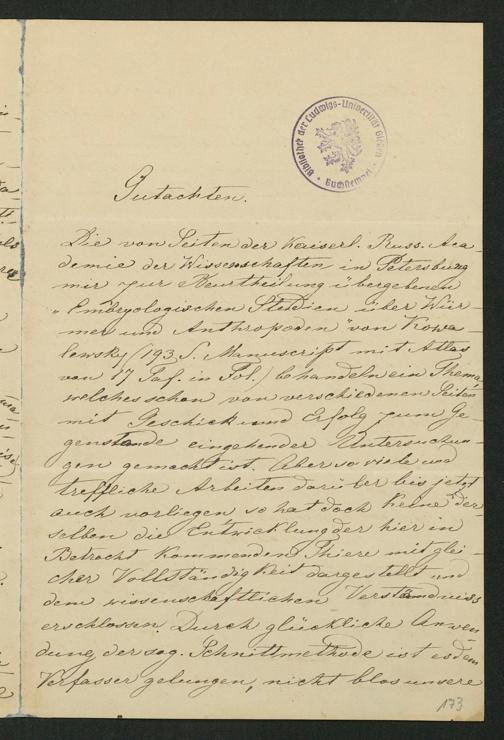 Bibliothek der Ludwigs-Universität Giessen
Buchstempel
Gutachten.
Die von Seiten der Kaiserl. Russ. Aca-
demie der Wissenschaften in Petersburg
mir zur Beurtheilung übergebenen
"Embryologischen Studien über Wür-
mer und Anthropoden" von Kowa-
lewsky (193 S. Manuscript mit Atlas
von 17 Taf. in Fol.) behandeln ein Thema
welches schon von verschiedenen Seiten
mit Geschick und Erfolg zum Ge-
genstande eingehender Untersuchun-
gen gemacht ist. Aber so viele und
treffliche Arbeiten darüber bis jetzt
auch vorliegen so hat doch keine der-
selben die Entwicklung der hier in
Betracht kommenden Thiere mit glei-
cher Vollständigkeit dargestellt und
dem wissenschaftlichen Verständniss
erschlossen. Durch glückliche Anwen
dung der sog. Schnittmethode ist es dem
Verfasser gelungen, nicht blos unsere
173